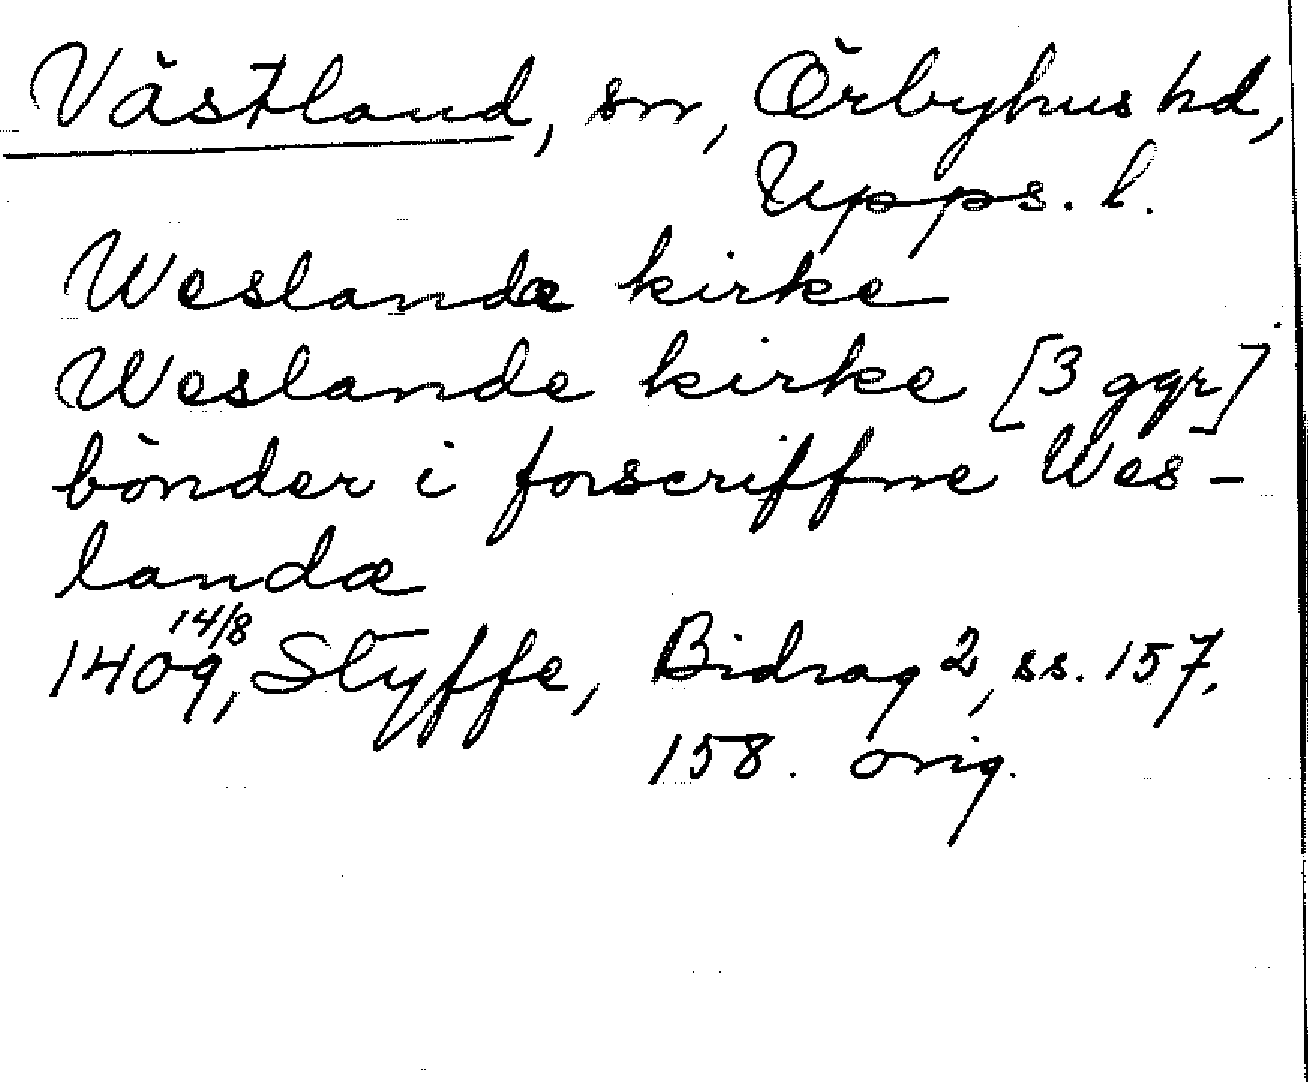 Västland, sn, Örbyhus hd,
Upps. l.
Weslandæ kirke
Weslande kirke [3 ggr]
bönder i forscriffne Wes-
landæ
1409 14/8, Styffe, Bidrag 2, ss. 157,
158. orig.